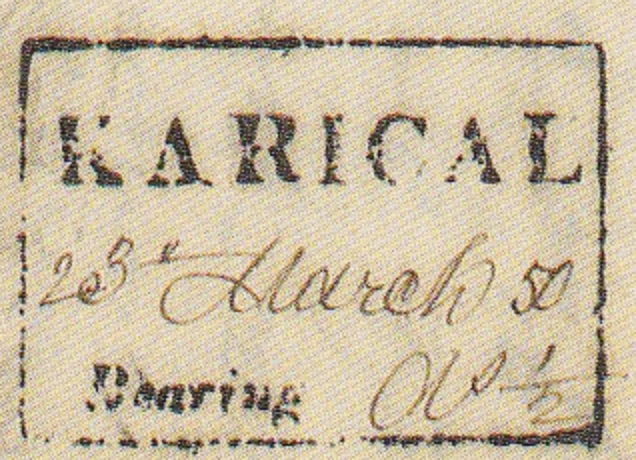 KARICAL
23" March 50
Bearing ½